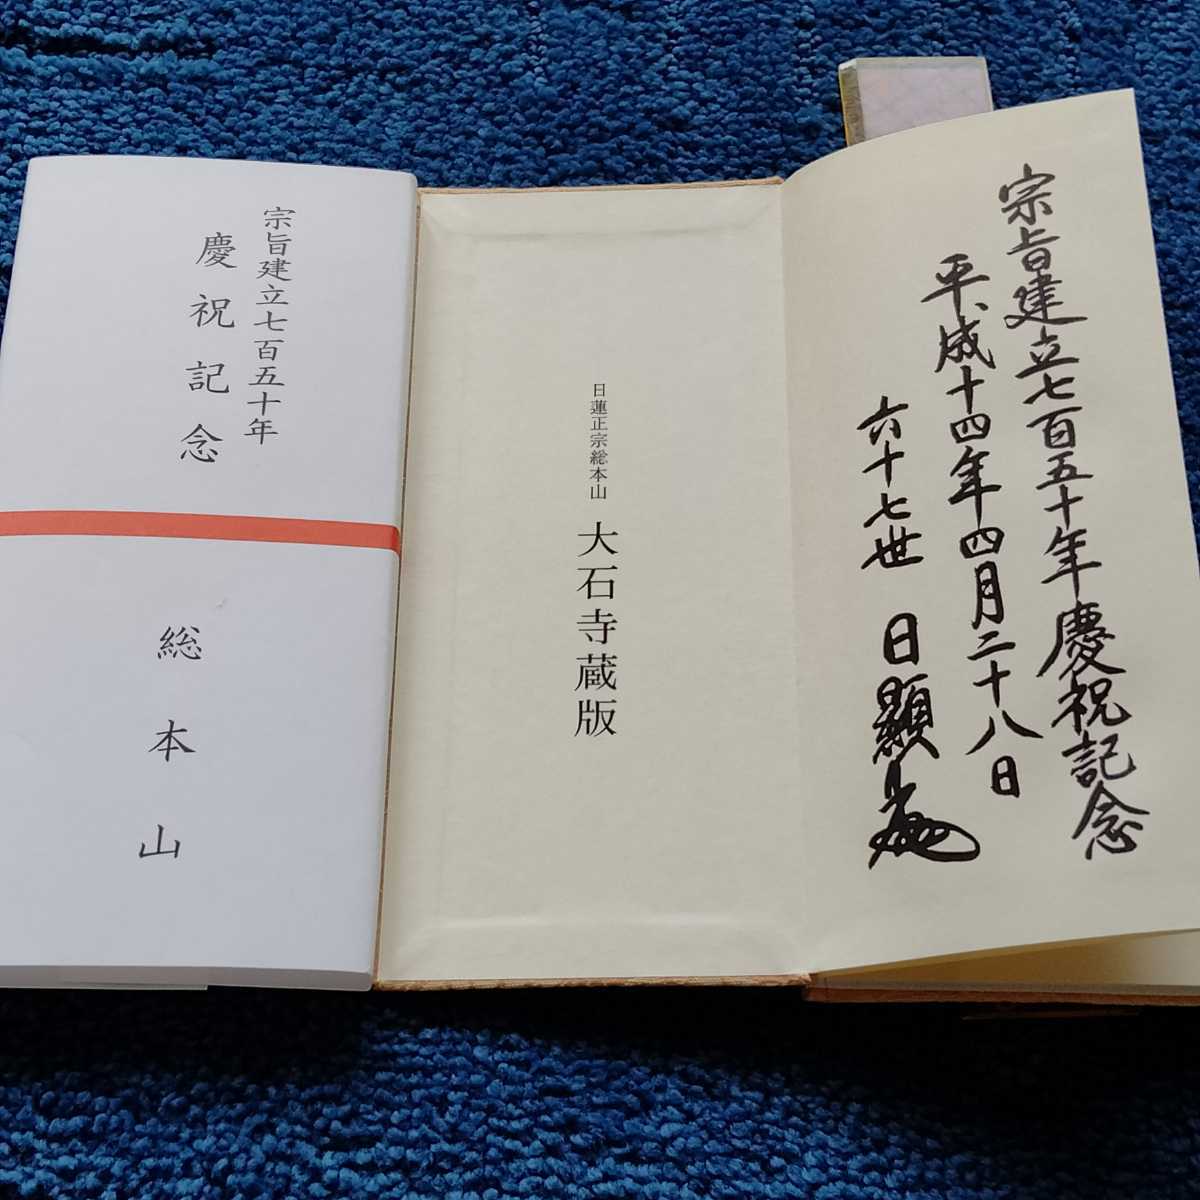 宗旨建立七百五十年
慶祝記念
総本山
日蓮正宗総本山 大石寺蔵版
宗旨建立七百五十年慶祝記念
平成十四年四月二十八日
六十七世 日顯